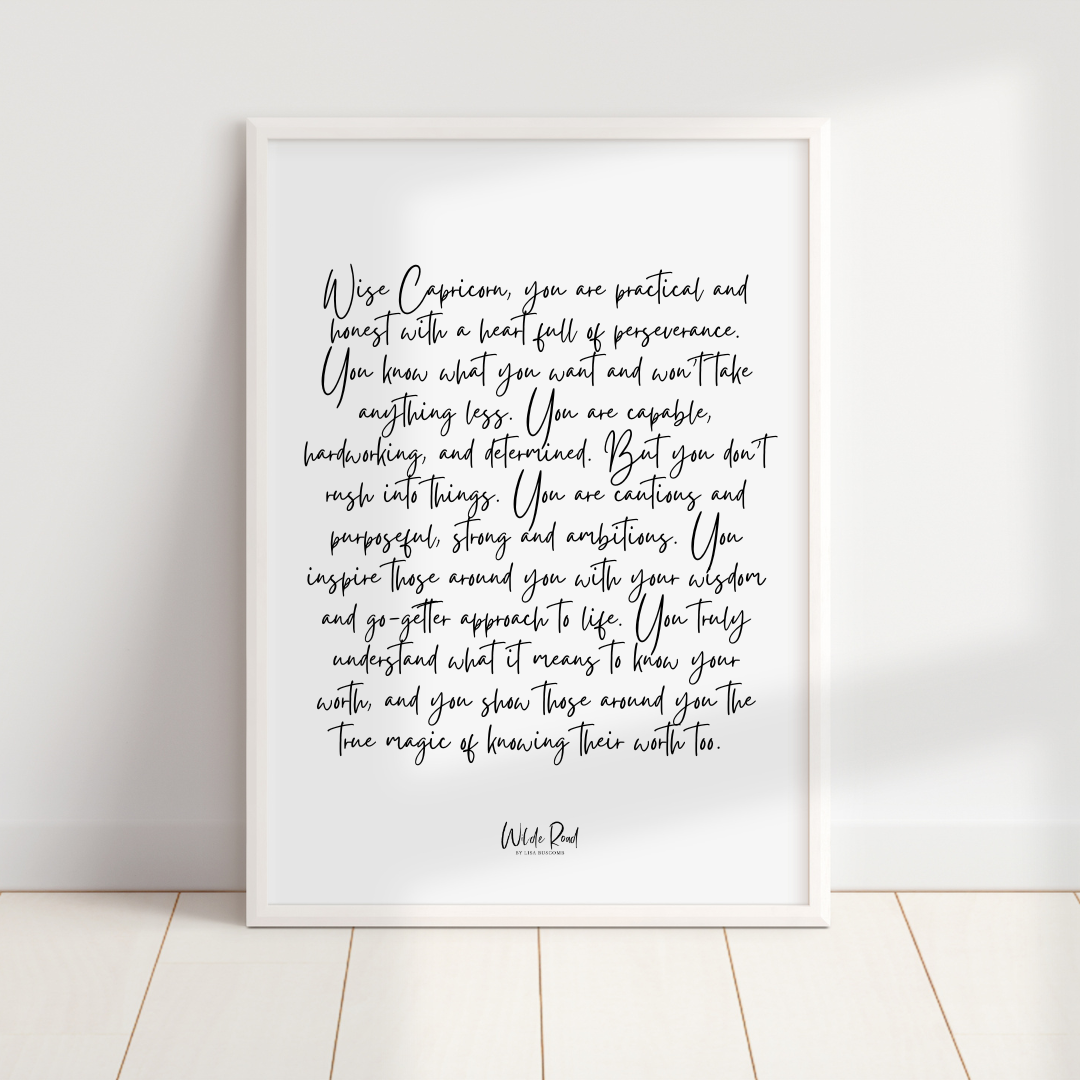 Wise Capricorn, you are practical and
honest with a heart full of perseverance.
You know what you want and won't take
anything less. You are capable,
hardworking, and determined. But you don't
rush into things. You are cautious and
purposeful, strong and ambitious. You
inspire those around you with your wisdom
and go-getter approach to life. You truly
understand what it means to know your
worth, and you show those around you the
true magic of knowing their worth too.
Wilde Road
BY LISA BUSCOMB